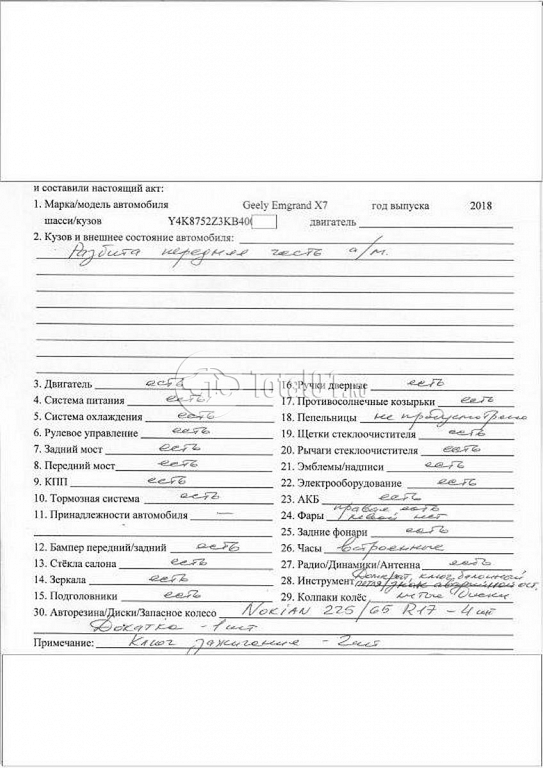 и составили настоящий акт:
1. Марка/модель автомобиля Geely Emgrand X7 год выпуска 2018
шасси/кузов Y4K8752Z3KB40 двигатель
2. Кузов и внешнее состояние автомобиля:
Разбита передняя часть а/м.
Total01.ru
3. Двигатель есть 16. Ручки дверные есть
4. Система питания есть 17. Противосолнечные козырьки есть
5. Система охлаждения есть 18. Пепельницы не предусмотрено
6. Рулевое управление есть 19. Щетки стеклоочистителя есть
7. Задний мост есть 20. Рычаги стеклоочистителя есть
8. Передний мост есть 21. Эмблемы/надписи есть
9. КПП есть 22. Электрооборудование есть
10. Тормозная система есть 23. АКБ есть
11. Принадлежности автомобиля — 24. Фары правая есть левой нет
25. Задние фонари есть
12. Бампер передний/задний есть 26. Часы встроенные
13. Стёкла салона есть 27. Радио/Динамики/Антенна есть
14. Зеркала есть 28. Инструмент Домкрат, ключ балонный петля/знак аварийной ост.
15. Подголовники есть 29. Колпаки колёс литые диски
30. Авторезина/Диски/Запасное колесо Nokian 225/65 R17 - 4 шт
Докатка - 1 шт
Примечание: Ключ зажигания - 2 шт